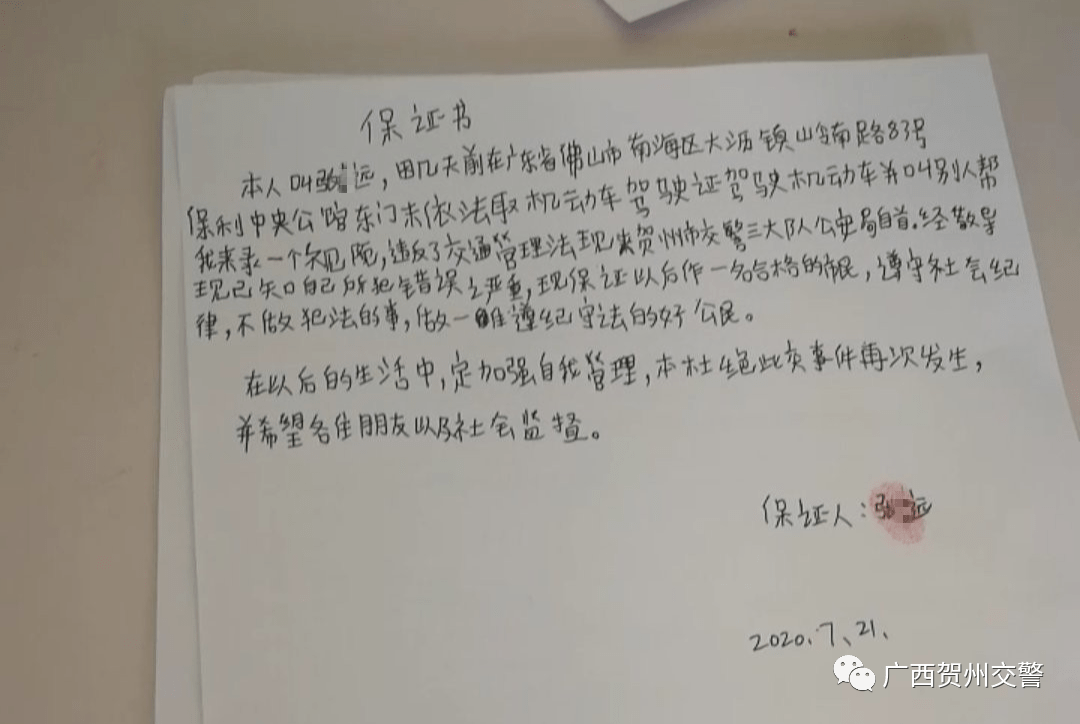 保证书
本人叫张远，因几天前在广东省佛山市南海区大沥镇岭南路83号
保利中央公馆东门未依法取机动车驾驶证驾驶机动车并叫别人帮
我来录一个视，违反了交通管理法现来贺州市交警三大队公安局自首.经教导
现已知自己所犯错误之严重，现保证以后作一名合格的市民，遵守社会纪
律，不做犯法的事，做一遵纪守法的好公民。
在以后的生活中，定加强自我管理，本杜绝此类事件再次发生，
并希望各住朋友以及社会监督。
保证人：张远
2020.7、21、
广西贺州交警